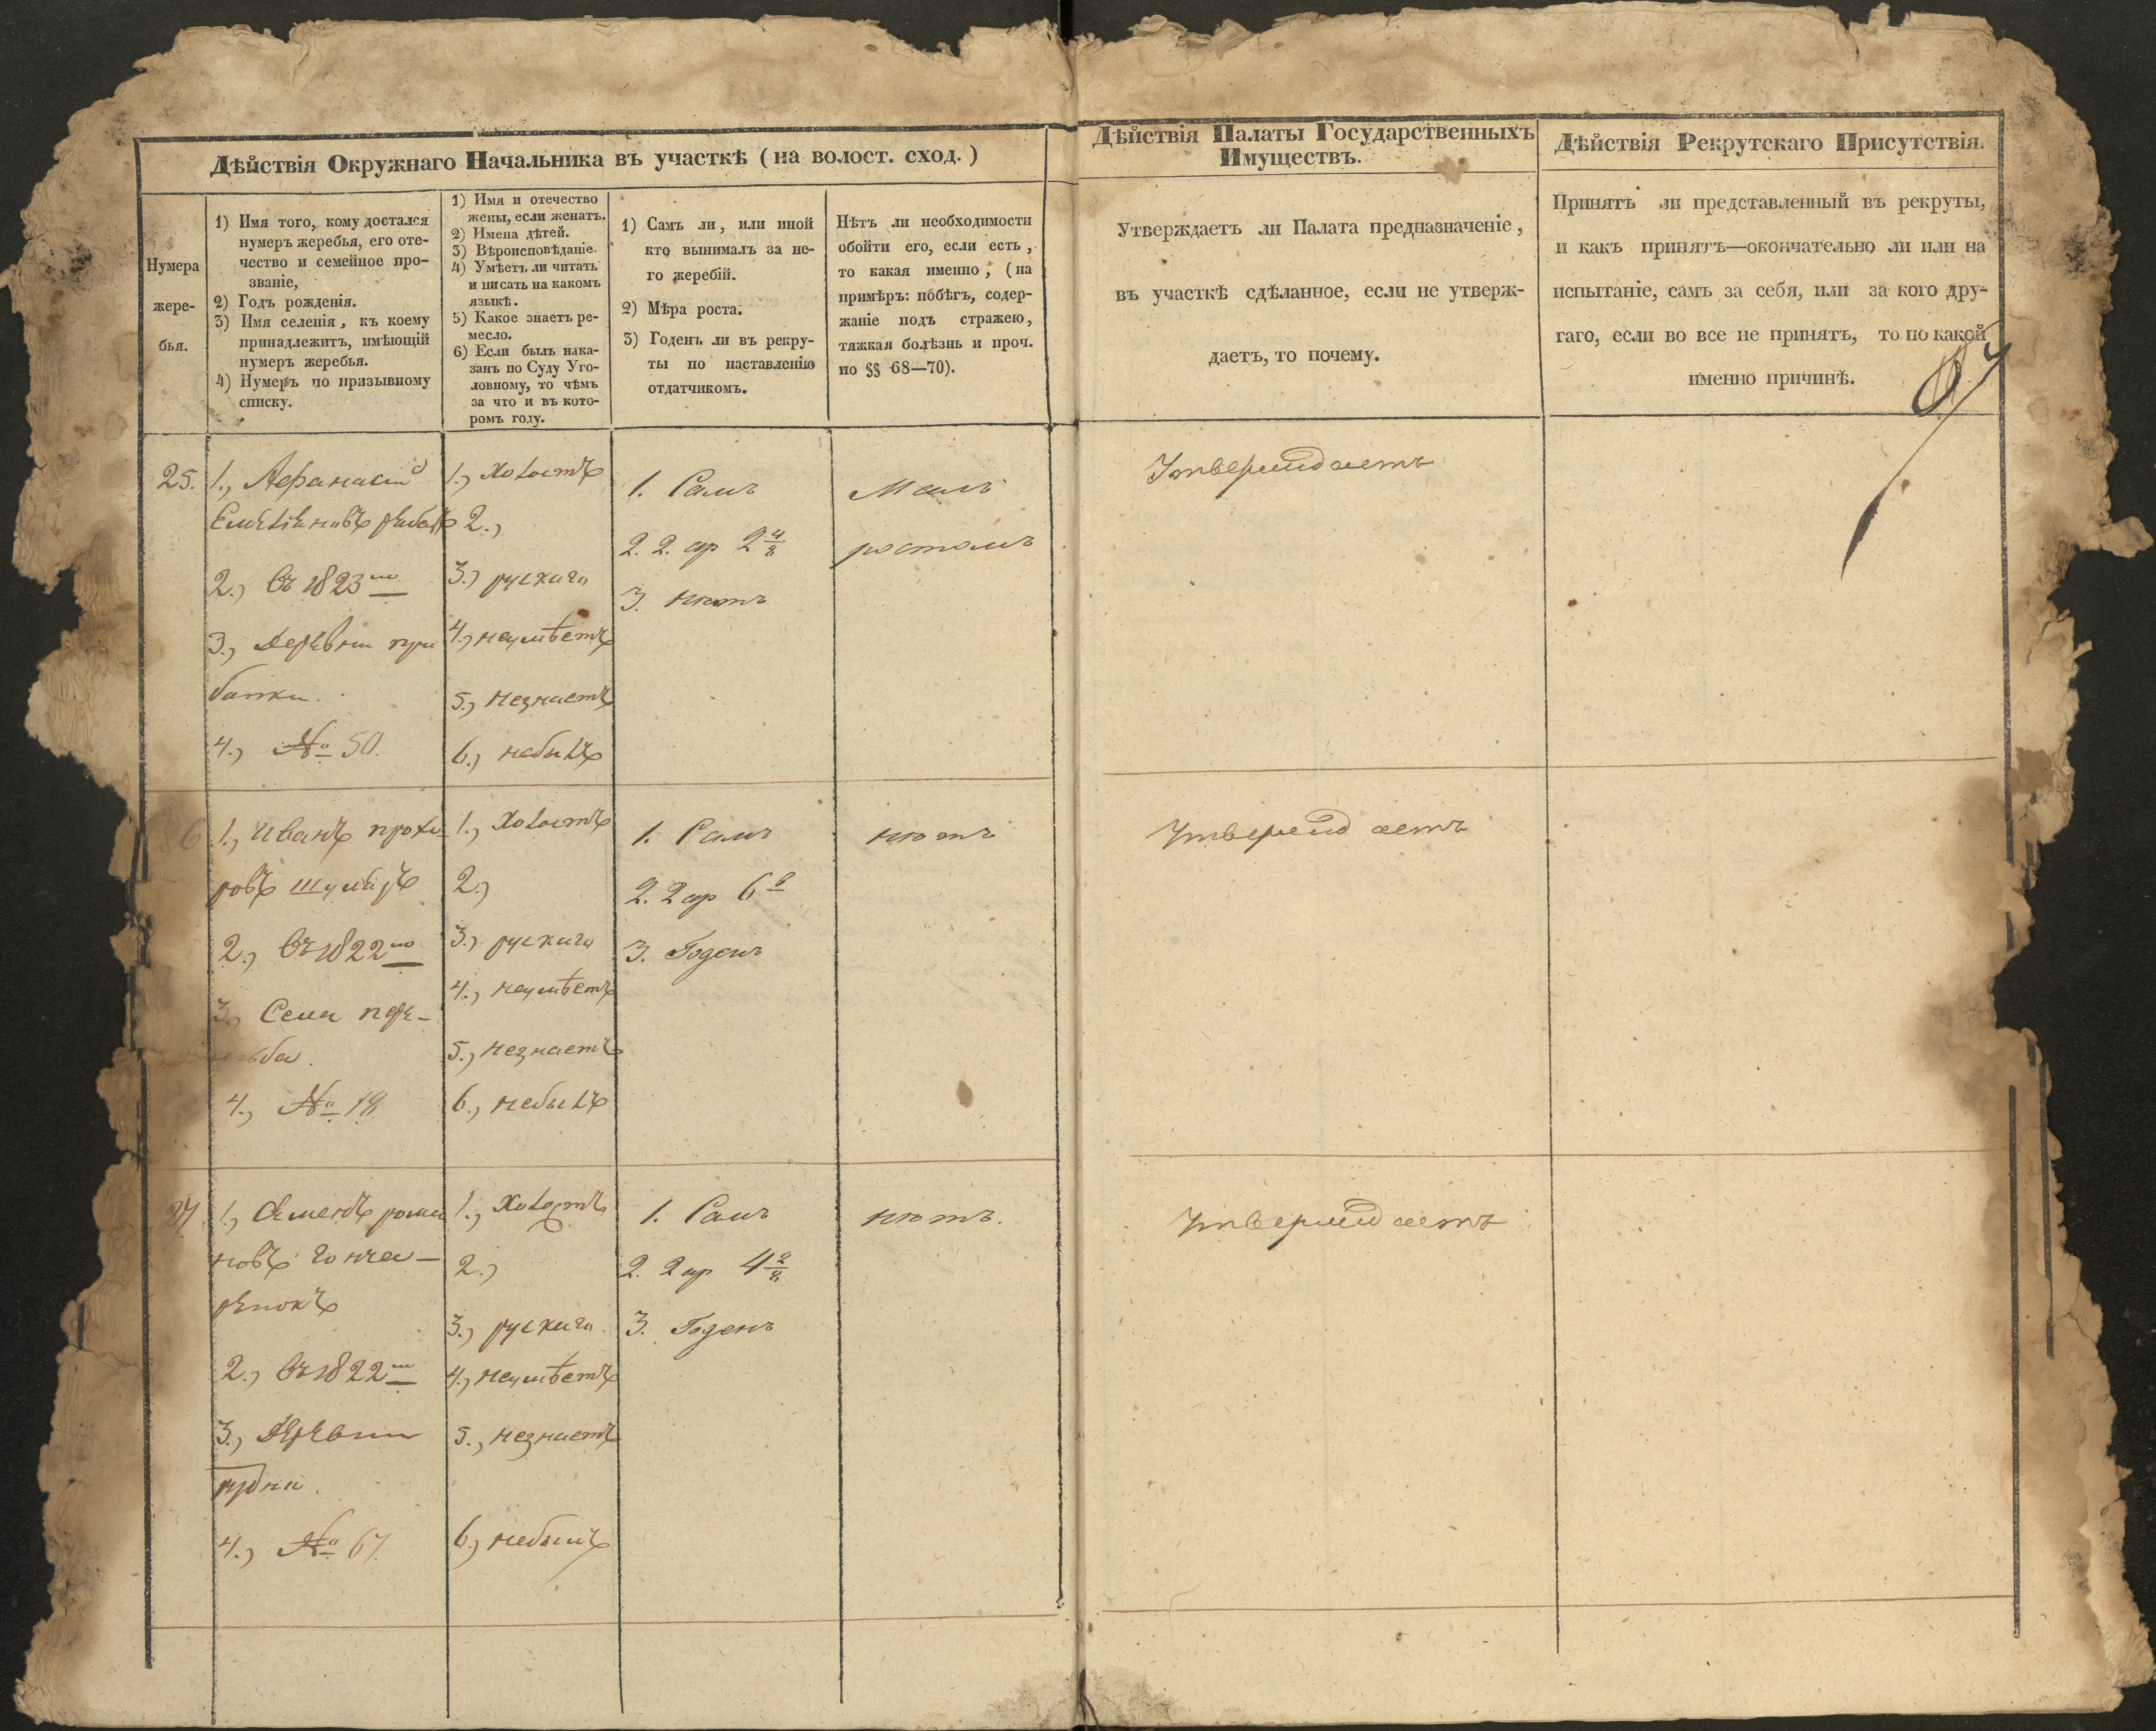 Дѣйствія Окружнаго Начальника въ участкѣ (на волост. сход.)
Нумера
жере-
бья.
1) Имя того, кому достался
нумеръ жеребья, его оте-
чество и семейное про-
званіе,
2) Годъ рожденія.
3) Имя селенія, къ коему
принадлежитъ, имѣющій
нумеръ жеребья.
4) Нумеръ по призывному
списку.
1) Имя и отечество
жены, если женатъ.
2) Имена дѣтей.
3) Вѣроисповѣданіе.
4) Умѣетъ ли читать
и писать на какомъ
языкѣ.
5) Какое знаетъ ре-
месло.
6) Если былъ нака-
занъ по Суду Уго-
ловному, то чѣмъ
за что и въ кото-
ромъ году.
1) Самъ ли, или иной
кто вынималъ за не-
го жеребій.
2) Мѣра роста.
3) Годенъ ли въ рекру-
ты по наставленію
отдатчикомъ.
Нѣтъ ли необходимости
обойти его, если есть,
то какая именно, (на
примѣръ: побѣгъ, содер-
жаніе подъ стражею,
тяжкая болѣзнь и проч.
по §§ 68—70).
Дѣйствія Палаты Государственныхъ
Имуществъ.
Утверждаетъ ли Палата предназначеніе,
въ участкѣ сдѣланное, если не утверж-
даетъ, то почему.
Дѣйствія Рекрутскаго Присутствія.
Принятъ ли представленный въ рекруты,
и какъ принятъ—окончательно ли или на
испытаніе, самъ за себя, или за кого дру-
гаго, если во все не принятъ, то по какой
именно причинѣ.
25.
1., Афанасий
Емелияновъ
2., Въ 1823
3., Деревни
4., № 50.
1., Холостъ
2.,
3.) рускаго
4., неумѣетъ
5., незнаетъ
6., небылъ
1. Самъ
2. 2. ар 2 4/8
3. нѣтъ
Малъ
ростомъ
Утверждаетъ
1., Иванъ прохо-
ровъ
2., Въ 1822
3., Села
4., № 19.
1., Холостъ
2.,
3.) рускаго
4., неумѣетъ
5., незнаетъ
6., небылъ
1. Самъ
2. 2 ар 6
3. Годенъ
нѣтъ
Утверждаетъ
27.
1., Семенъ рома
новъ гонча-
ренокъ
2., Въ 1822
3., Деревни
рудни.
4., № 67.
1., Холостъ
2.,
3., рускаго.
4., неумѣетъ
5., незнаетъ
6., небылъ
1. Самъ
2. 2 ар 4 2/8
3. Годенъ
нѣтъ.
Утверждаетъ